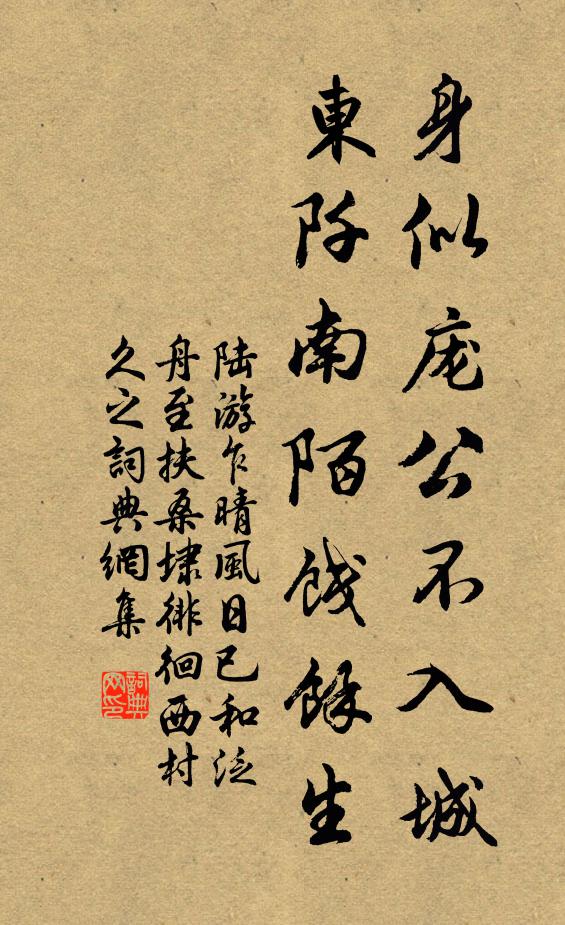 身似庞公不入城
東阡南陌餞餘生
陆游乍晴風日已和泛
舟至扶桑埭徘徊西村
久之詞典網集
詞典
网印